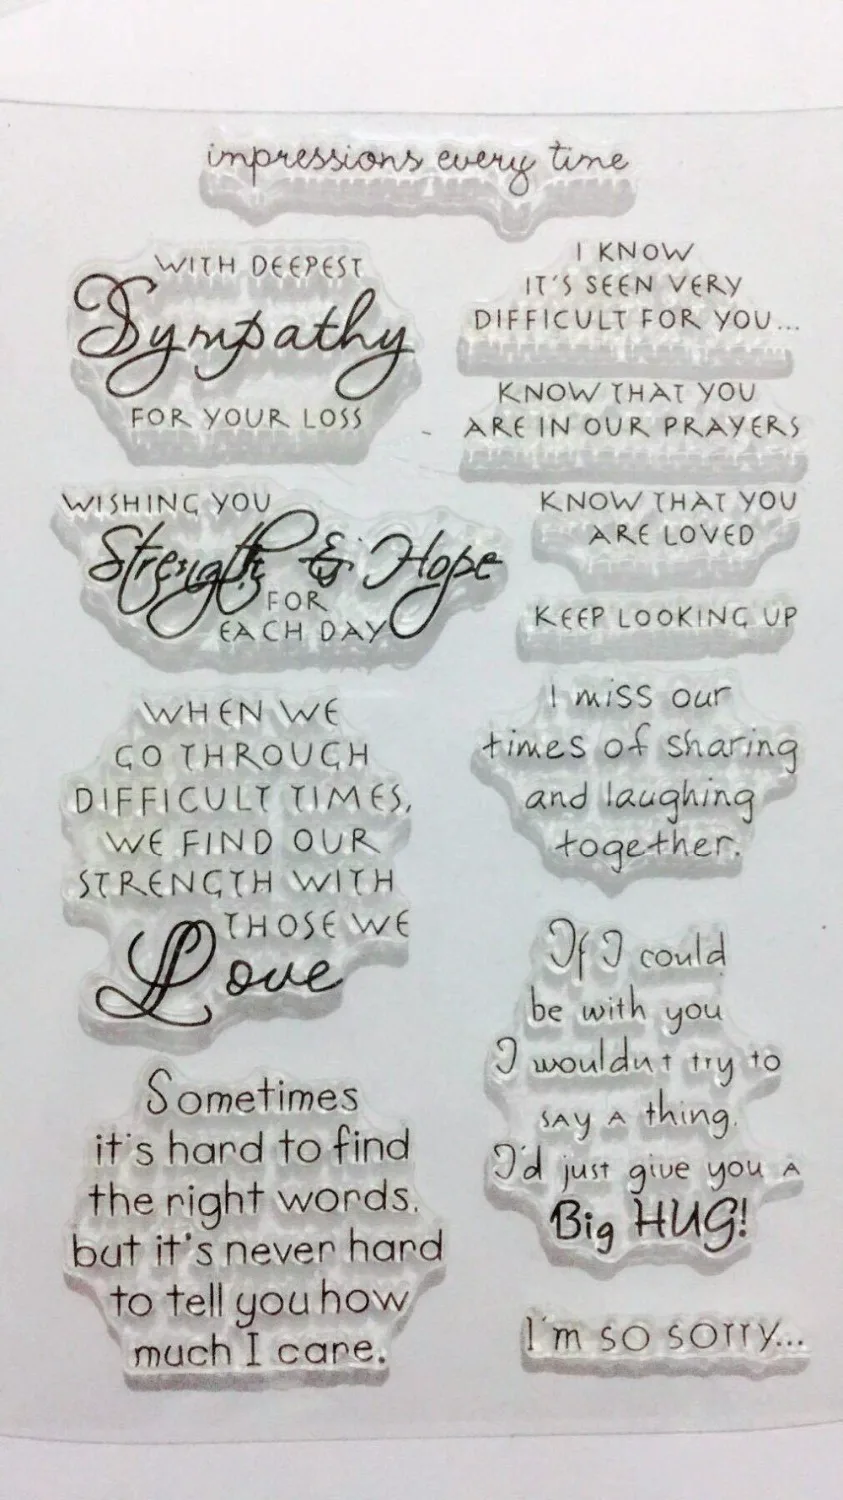 impressions every time
WITH DEEPEST
Sympathy
FOR YOUR LOSS
WISHING YOU
Strength & Hope
FOR
EACH DAY
WHEN WE
GO THROUGH
DIFFICULT TIMES,
WE FIND OUR
STRENGTH WITH
THOSE WE
Love
Sometimes
it's hard to find
the right words,
but it's never hard
to tell you how
much I care.
I KNOW
IT'S SEEN VERY
DIFFICULT FOR YOU...
KNOW THAT YOU
ARE IN OUR PRAYERS
KNOW THAT YOU
ARE LOVED
KEEP LOOKING UP
I miss our
times of sharing
and laughing
together.
If I could
be with you
I wouldn't try to
say a thing.
I'd just give you a
Big HUG!
I'm so sorry...